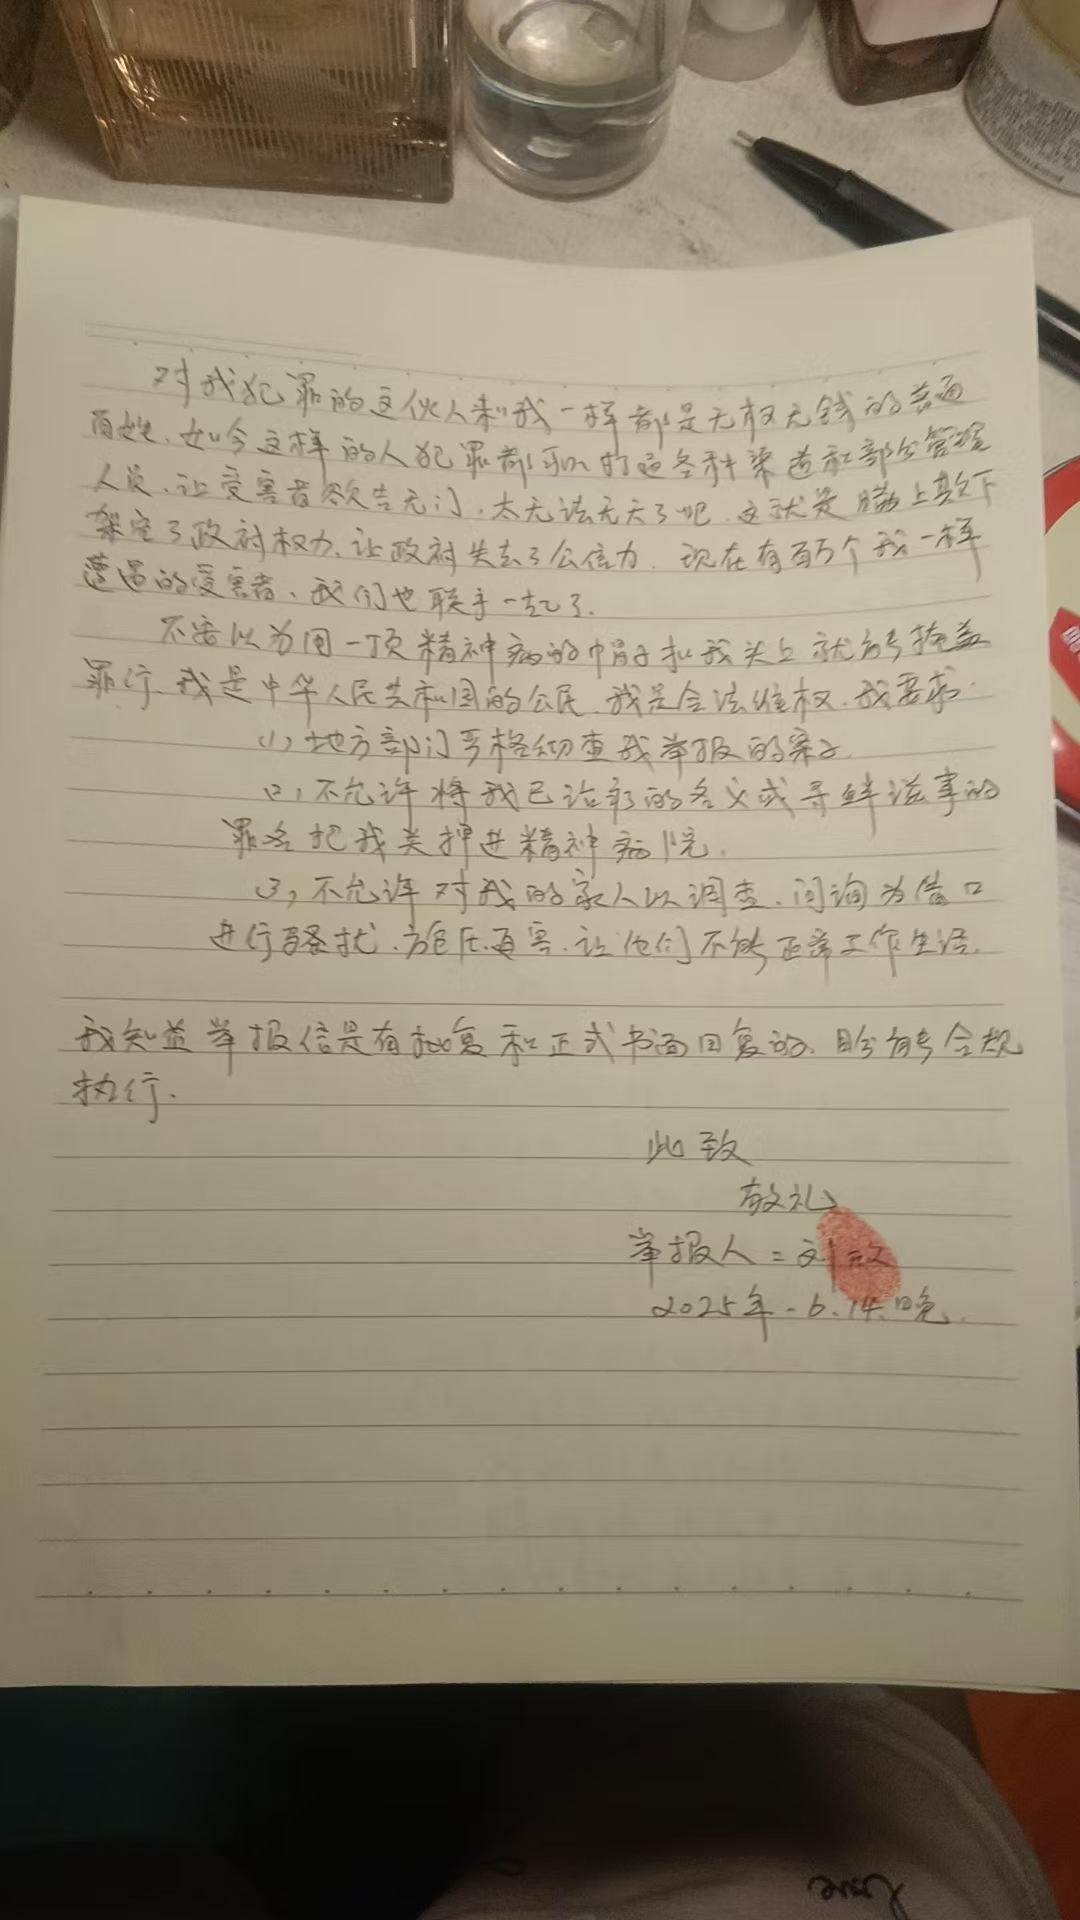 对我犯罪的这伙人和我一样都是无权无钱的普通
百姓、如今这样的人犯罪都可以打通各种渠道和部分管理
人员、让受害者欲告无门、太无法无天了吧、这就是瞒上欺下
架空了政府权力、让政府失去了公信力、现在有百万个我一样
遭遇的受害者、我们也联手一起了.
不要以为用一顶精神病的帽子扣我头上就能掩盖
罪行、我是中华人民共和国的公民、我是合法维权、我要求:
(1)、地方部门严格彻查我举报的案子.
(2)、不允许将我已治疗的名义或寻衅滋事的
罪名把我关押进精神病院.
(3)、不允许对我的家人以调查、问询为借口
进行骚扰、施压、 让他们不能正常工作生活.
我知道举报信是有批复和正式书面回复的、 能合规
执行.
此致
敬礼
举报人:刘
2025年.6.14.晚.